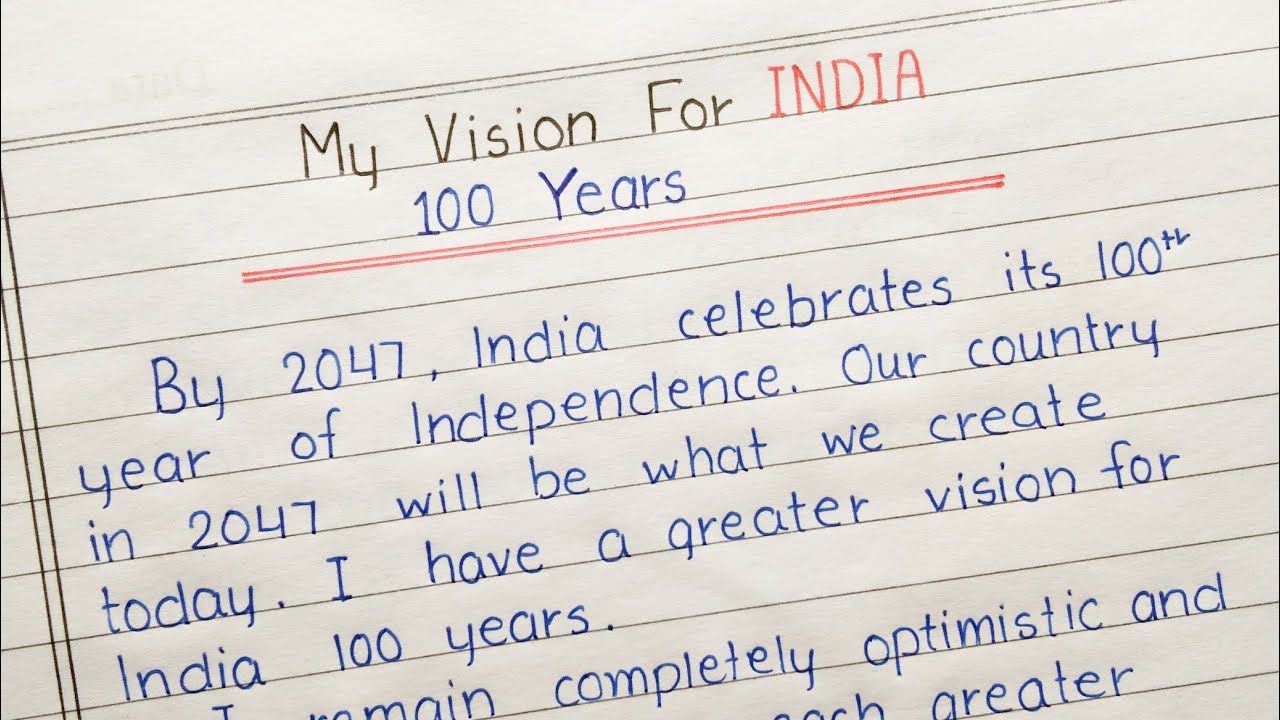 My Vision For INDIA
100 Years
By 2047, India celebrates its 100th
year of Independence. Our country
in 2047 will be what we create
today. I have a greater vision for
India 100 years.
I remain completely optimistic and
greater